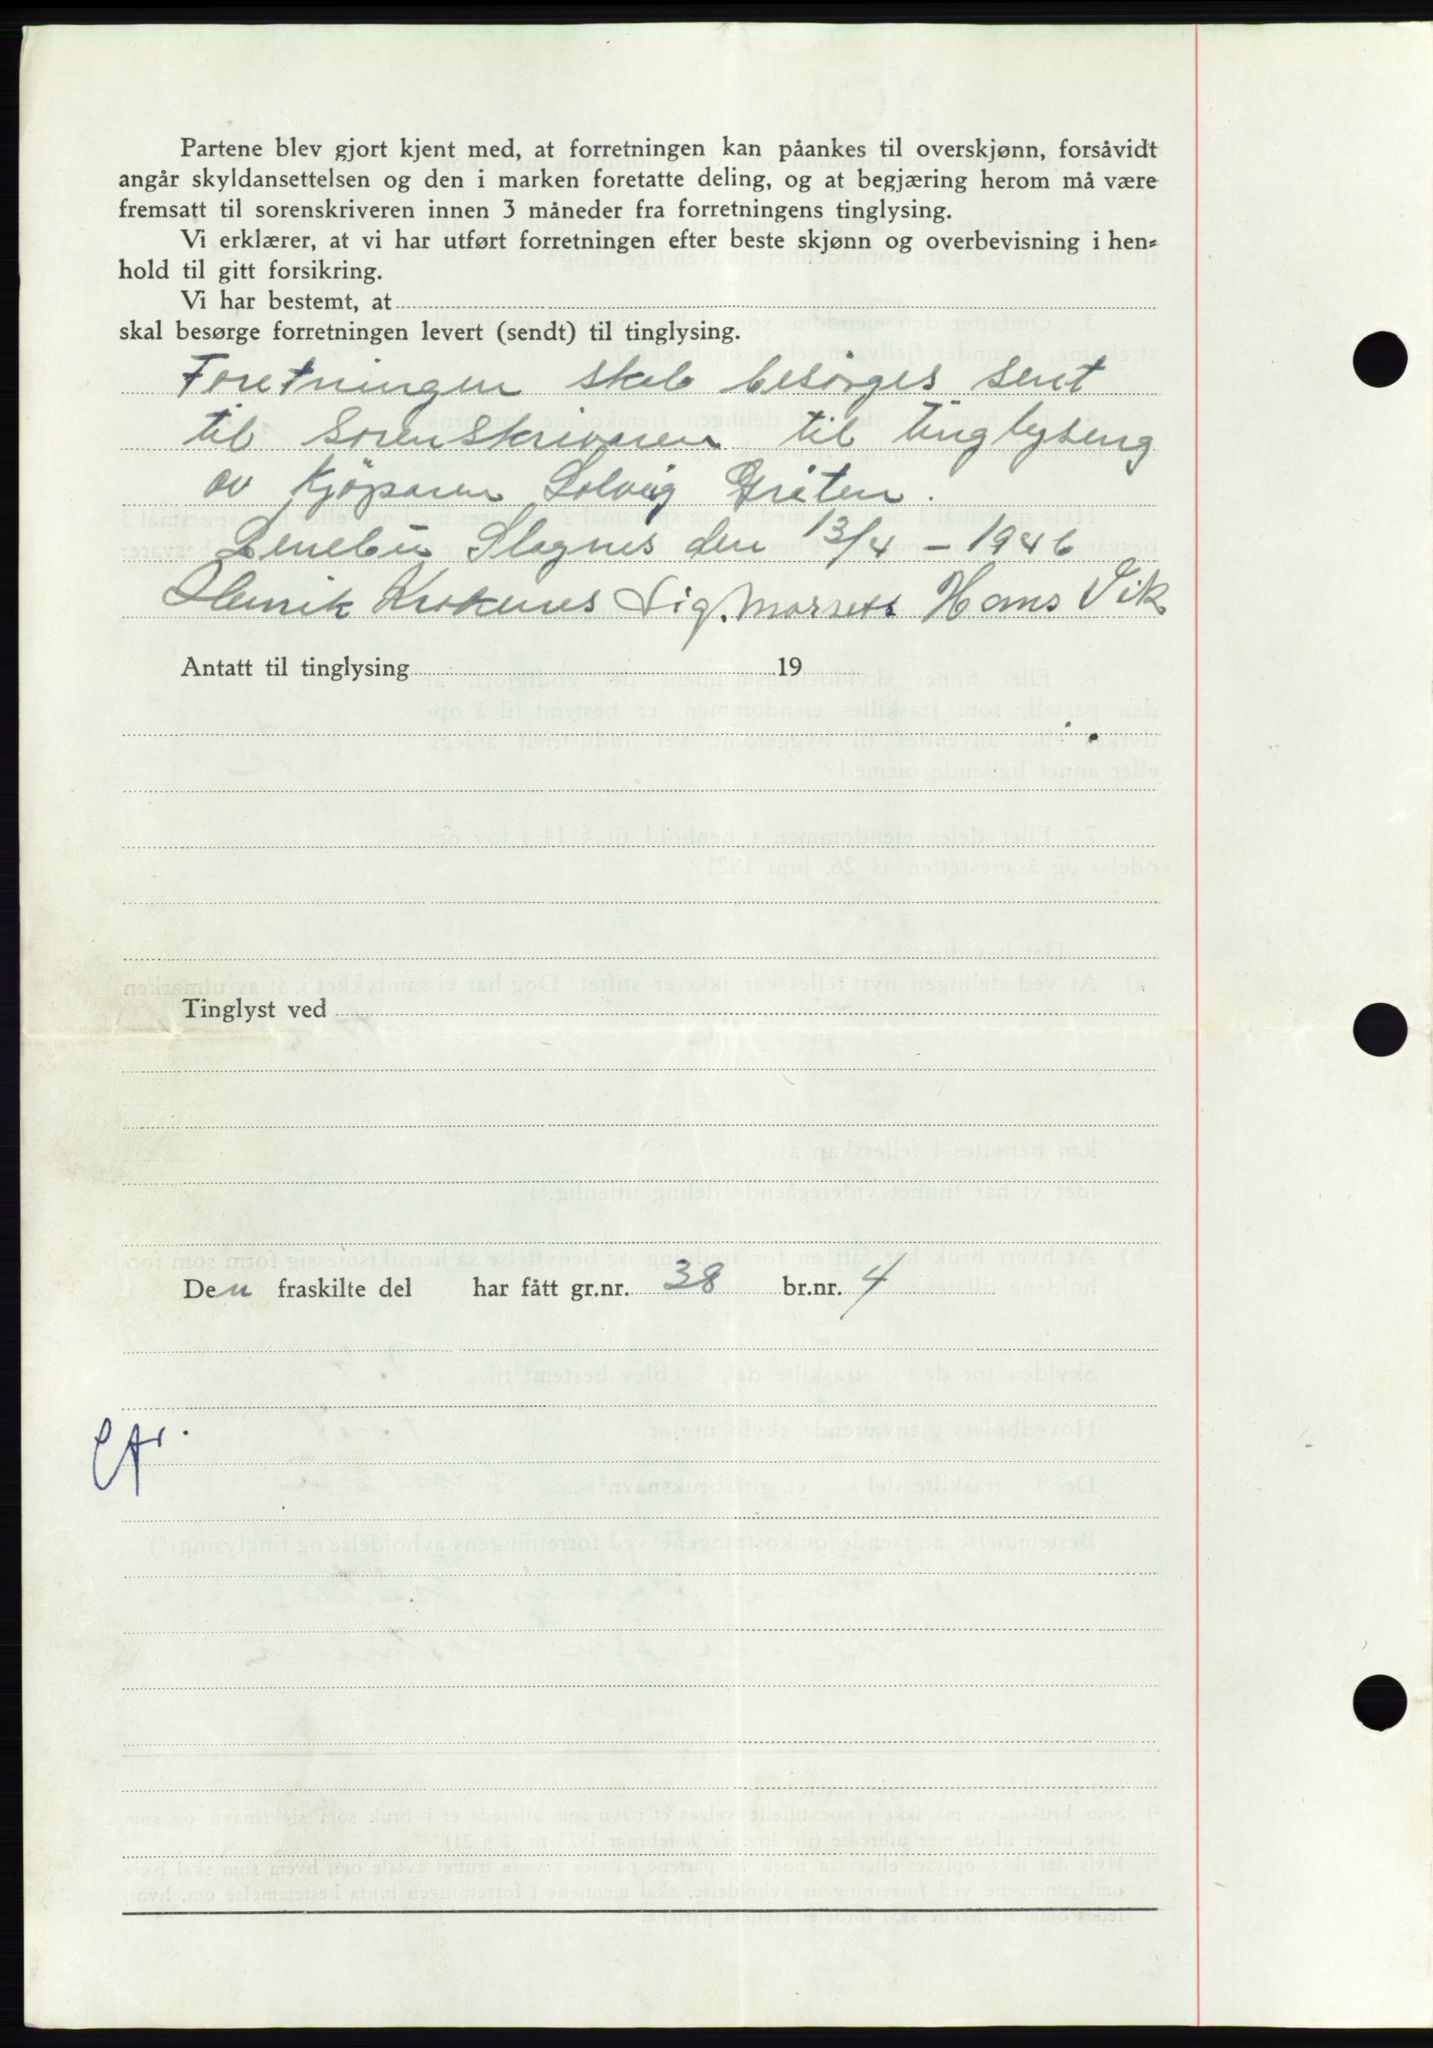 Partene blev gjort kjent med, at forretningen kan påankes til overskjønn, forsåvidt
angår skyldansettelsen og den i marken foretatte deling, og at begjæring herom må være
fremsatt til sorenskriveren innen 3 måneder fra forretningens tinglysing.
Vi erklærer, at vi har utført forretningen efter beste skjønn og overbevisning i hen-
hold til gitt forsikring.
Vi har bestemt, at
skal besørge forretningen levert (sendt) til tinglysing.
Foretningen skal besörges sent
til Sorenskrivaren til tinglysing
av Kjöparen Solveig
Slagnes den 13/4 - 1946
Henrik Kroknes Sig. Hans Vik
Antatt til tinglysing 19
Tinglyst ved
Den fraskilte del har fått gr.nr. 38 br.nr. 4